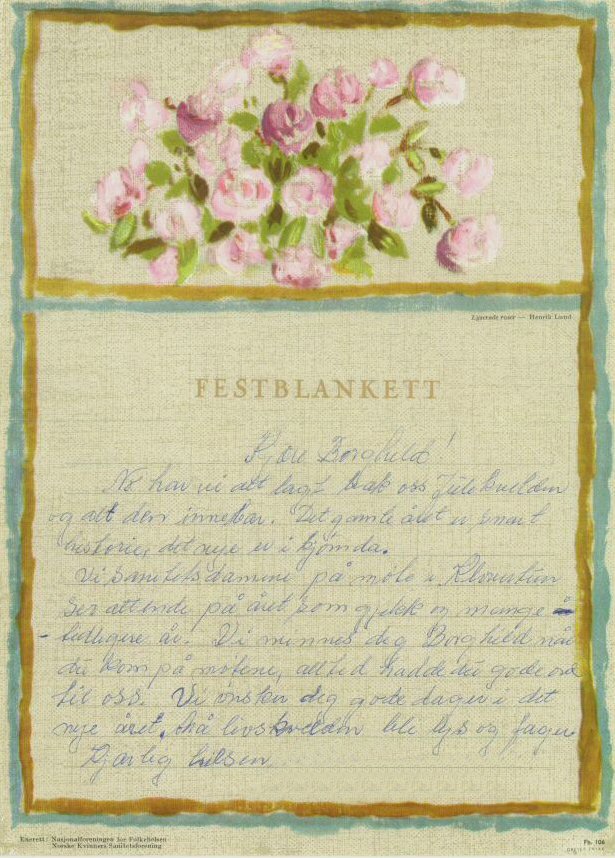 Lysende roser — Henrik Lund
FESTBLANKETT
Kjære Borghild!
No har vi alt lagt bak oss Julekvelden
og alt den innebar. Det gamle året er snart
historie, det nye er i kjømda.
Vi sanitetsdamene på møte i
ser attende på året som gjekk og mange
tidligere år. Vi minnes deg Borghild når
du kom på møtene, alltid hadde du gode ord
til oss. Vi ønsker deg gode dager i det
nye året. Må livskvelden bli lys og fager
Kjærlig hilsen
Enerett: Nasjonalforeningen for Folkehelsen
Norske Kvinners Sanitetsforening
Fb. 106